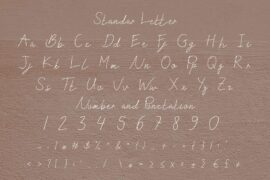 Standar Letter
Aa Bb Cc Dd Ee Ff Gg Hh Ii
Jj Kk Ll Mm Nn Oo Pp Qq Rr
Ss Tt Uu Vv Ww Xx Yy Zz
Number and Punctation
1 2 3 4 5 6 7 8 9 0